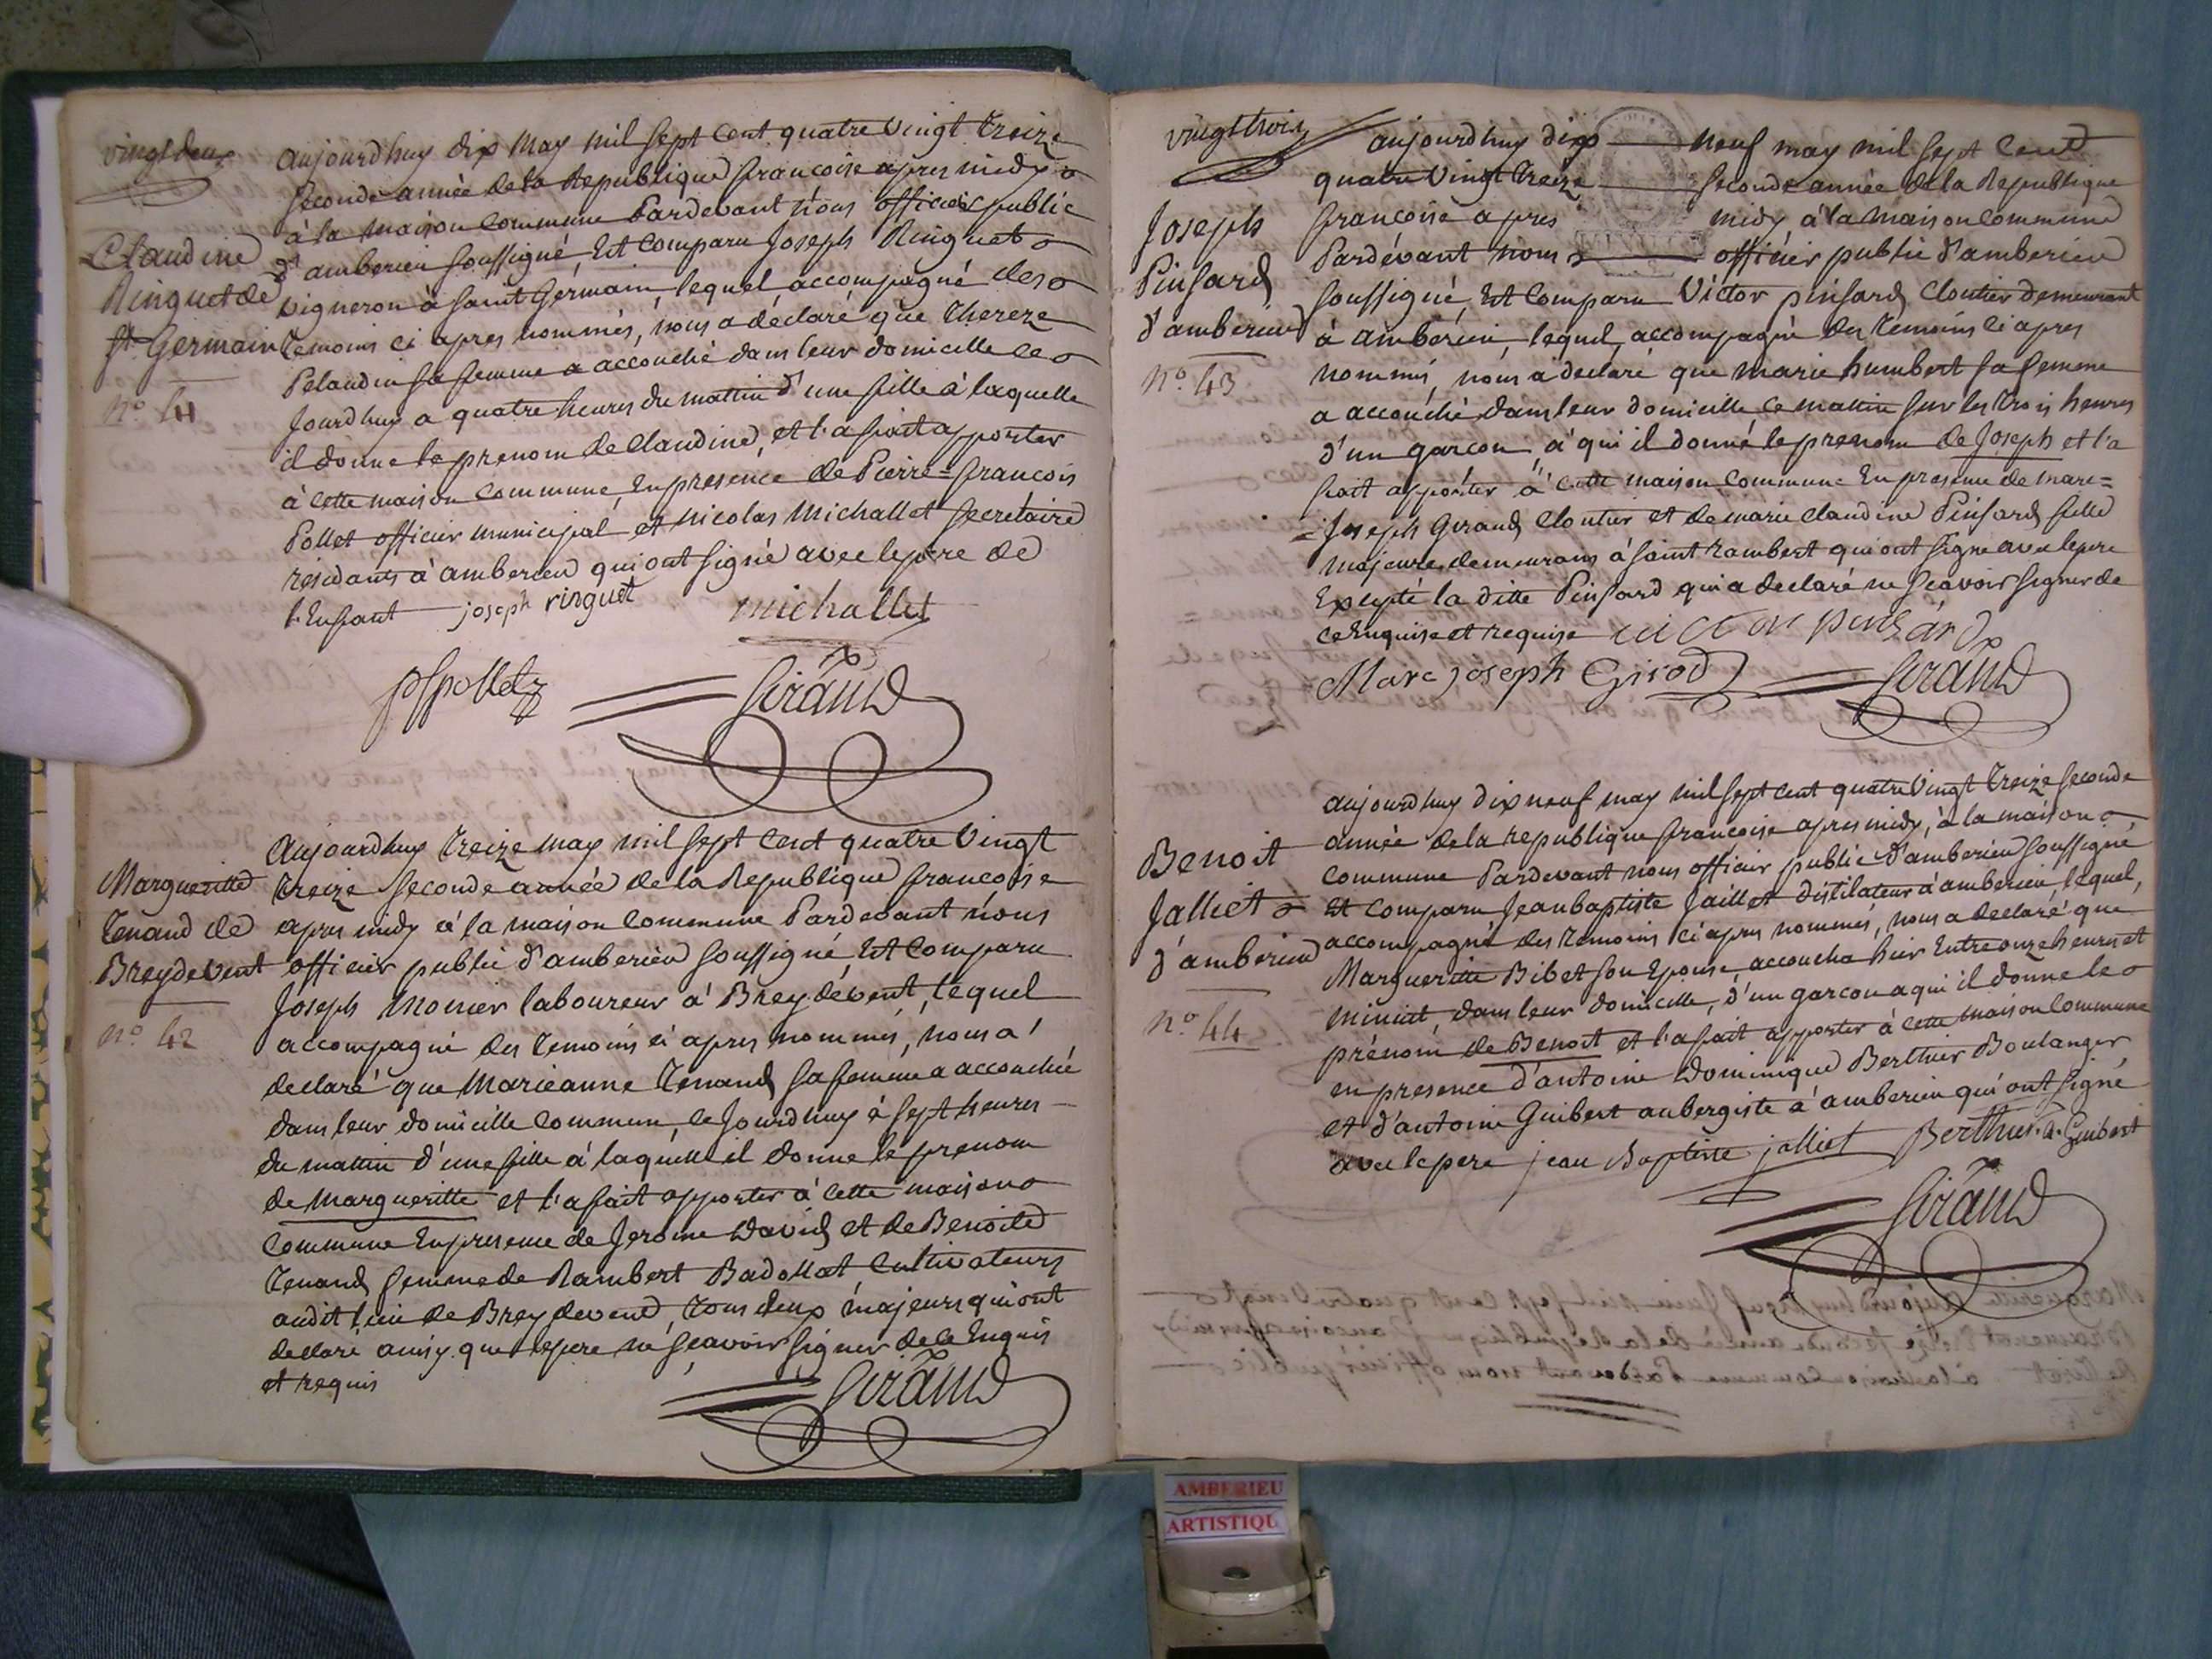 vingt deux
Claudine
Ringuet de
St Germain
no. 41
aujourdhuy dix may mil sept cent quatre vingt treize
seconde année de la Republique francoise apres midy
à la maison commune Pardevant nous officier public
d'amberieu soussigné, Est comparu Joseph Ringuet
vigneron à saint Germain, lequel accompagné des
temoins ci apres nommés, nous a déclaré que thereze
Pelaudin sa femme a accouché dans leur domicille ce
jourdhuy a quatre heures du mattin d'une fille à laquelle
il donne le prenom de Claudine, et l'a fait apporter
à cette maison commune En presence de Pierre=francois
Pollet officier municipal et Nicolas Michallet secretaire
residants à amberieu qui ont signé avec le pere de
l'Enfant joseph ringuet michallet
pfpollet Giraud
Margueritte
Tenand de
Breydevent
no. 42
Aujourdhuy treize may mil sept cent quatre vingt
treize seconde année de la Republique francoise
apres midy à la maison commune Pardevant nous
officier public d'amberieu soussigné, Est comparu
Joseph Monier laboureur à Breydevent, lequel
accompagné des temoins ci apres nommés, nous a
declaré que Marieanne Tenand sa femme a accouchée
dans leur domicille commun, ce jourdhuy à sept heures
du mattin d'une fille à laquelle il donne le prenom
de margueritte et l'a fait apporter à cette maison
commune En presence de Jerome David et de Benoite
Tenand femme de Rambert Badollat, cultivateurs
audit lieu de Breydevend, tous deux majeurs qui ont
declaré ainsy que le pere ne sçavoir signer de ce Enquis
et requis Giraud
vingt trois
Joseph
Pinsard
d'amberieu
no. 43
aujourdhuy dix neuf may mil sept cent
quatre vingt treize seconde année de la Republique
francoise apres midy, à la maison commune
Pardevant nous officier public d'amberieu
soussigné, Est comparu Victor pinsard Cloutier demeurant
à amberieu, lequel, accompagné des temoins ci apres
nommés, nous a declaré que marie humbert sa femme
a accouché dans leur domicille ce mattin sur les trois heures
d'un garcon, à qui il donné le prenom de Joseph et l'a
fait apporter à cette maison commune En presence de marc=
=Joseph Giraud Cloutier et de marie claudine Pinsard fille
majeure demeurans à saint rambert qui ont signé avec le pere
Excepté la ditte Pinsard qui a declaré ne sçavoir signer de
ce Enquise et requise victor pinsard
Marc joseph Girod Giraud
Benoit
Jalliet
d'amberieu
no. 44
aujourdhuy dix neuf may mil sept cent quatre vingt treize seconde
année de la republique francoise apres midy, à la maison
commune Pardevant nous officier public d'amberieu soussigné
Est comparu Jean baptiste Jaillet distilateur à amberieu, lequel,
accompagné des temoins ci apres nommés, nous a declaré que
Margueritte Bibet son Epouse, accoucha hier Entre onze heures et
minuit, dans leur domicille, d'un garcon a qui il donne le
prénom de Benoit et l'a fait apporter à cette maison commune
en presence d'antoine Dominique Berthier Boulanger
et d'antoine Guibert aubergiste à amberieu qui ont signé
avec le pere jean Baptiste jalliet Berthier. A. Guibert
Giraud
AMBERIEU
ARTISTIQU